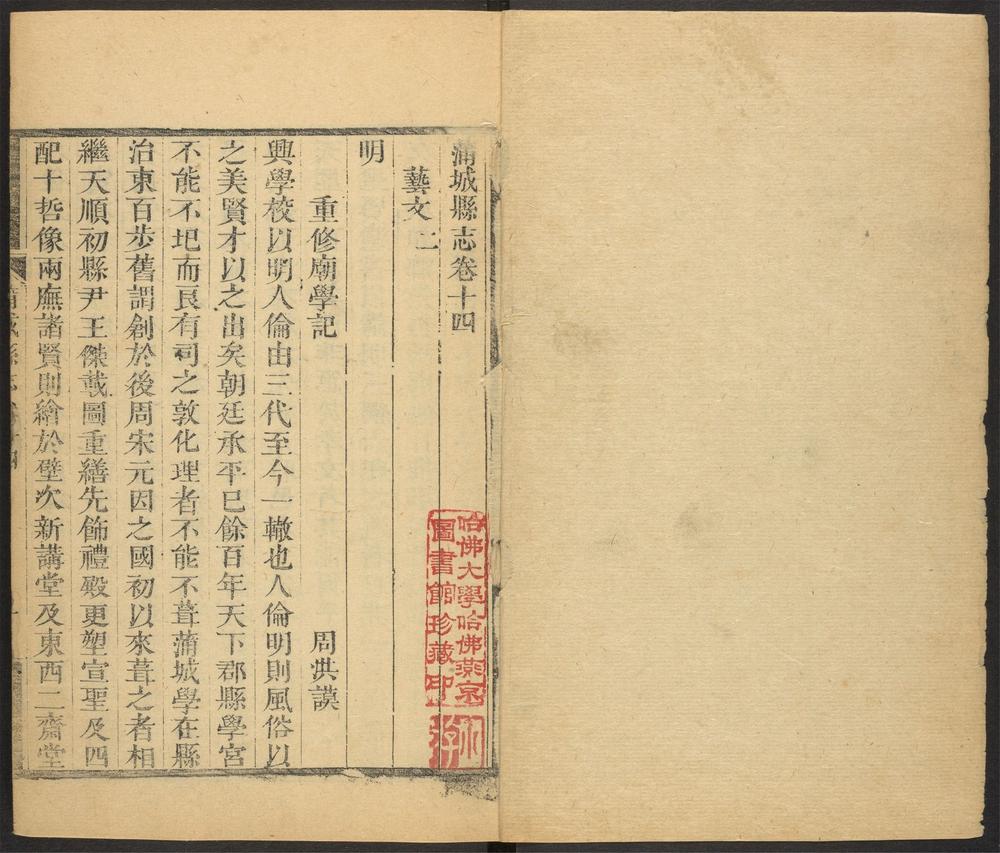 蒲城縣志卷十四
藝文二
明
重修廟學記　周洪謨
興學校以明人倫由三代至今一轍也人倫明則風俗以
之美賢才以之出矣朝廷承平已餘百年天下郡縣學宮
不能不圯而良有司之敦化理者不能不葺蒲城學在縣
治東百步舊謂創於後周宋元因之國初以來葺之者相
繼天順初縣尹王傑載圖重繕先飾禮殿更塑宣聖及四
配十哲像兩廡諸賢則繪於壁次新講堂及東西二齋堂
哈佛大學哈佛燕京
圖書館珍藏印